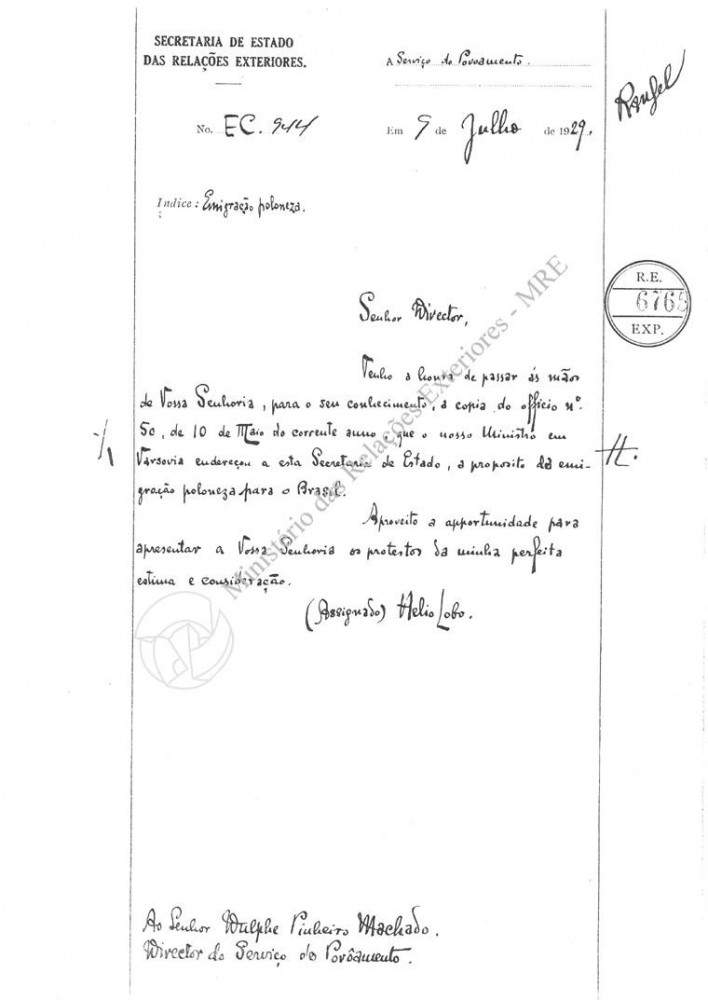 SECRETARIA DE ESTADO
DAS RELAÇÕES EXTERIORES.
A Serviço do Povoamento.
Rangel
No. EC. 944
Em 9 de Julho de 1929.
Indice: Emigração poloneza.
R.E.
6765
EXP.
Senhor Director,
Tenho a honra de passar ás mãos
de Vossa Senhoria, para o seu conhecimento, a copia do officio nº.
50, de 10 de Maio do corrente anno, que o nosso Ministro em
Varsovia endereçou a esta Secretaria de Estado, a proposito da emi-
gração poloneza para o Brasil.
Aproveito a opportunidade para
apresentar a Vossa Senhoria os protestos da minha perfeita
estima e consideração.
(Assignado) Helio Lobo.
Ministério das Relações Exteriores - MRE
Ao Senhor Dulphe Pinheiro Machado.
Director do Serviço de Povôamento.